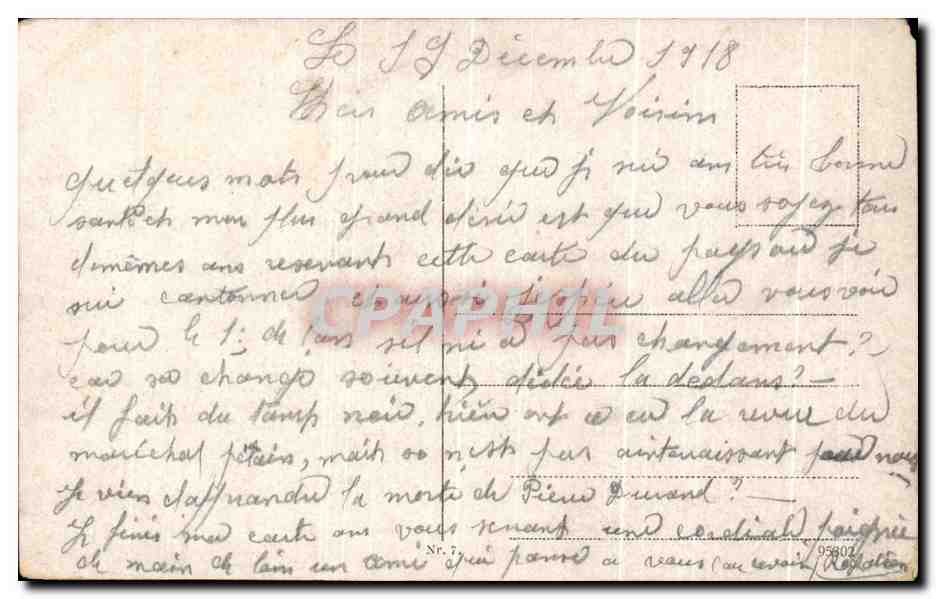 Le 19 Décembre 1918
Chers Amis et Voisins
quelques mots pour dir que je sui ans très bonne
santé et mon plus grand désir est que vous soyez tous
de mêmes ans resevant cette carte du pays ou je
sui cantonner et aussi j'espère aller vous voir
pour le 1: de l'ans sil ni a pas changement?
car sa change souvent d'idée la dedans? —
il fait du temp noir, hier ont a eu la revue du
maréchal pétain, mais sa n'est pas aintérraissant pour nous
Je vien d'apprandre la morte de Pierre Durand? —
Je finis ma carte ans vous serrant une cordiale poignée
de main de loin un ami qui panse a vous (au revoir)
CPARHIL
Nr. 7.
95302